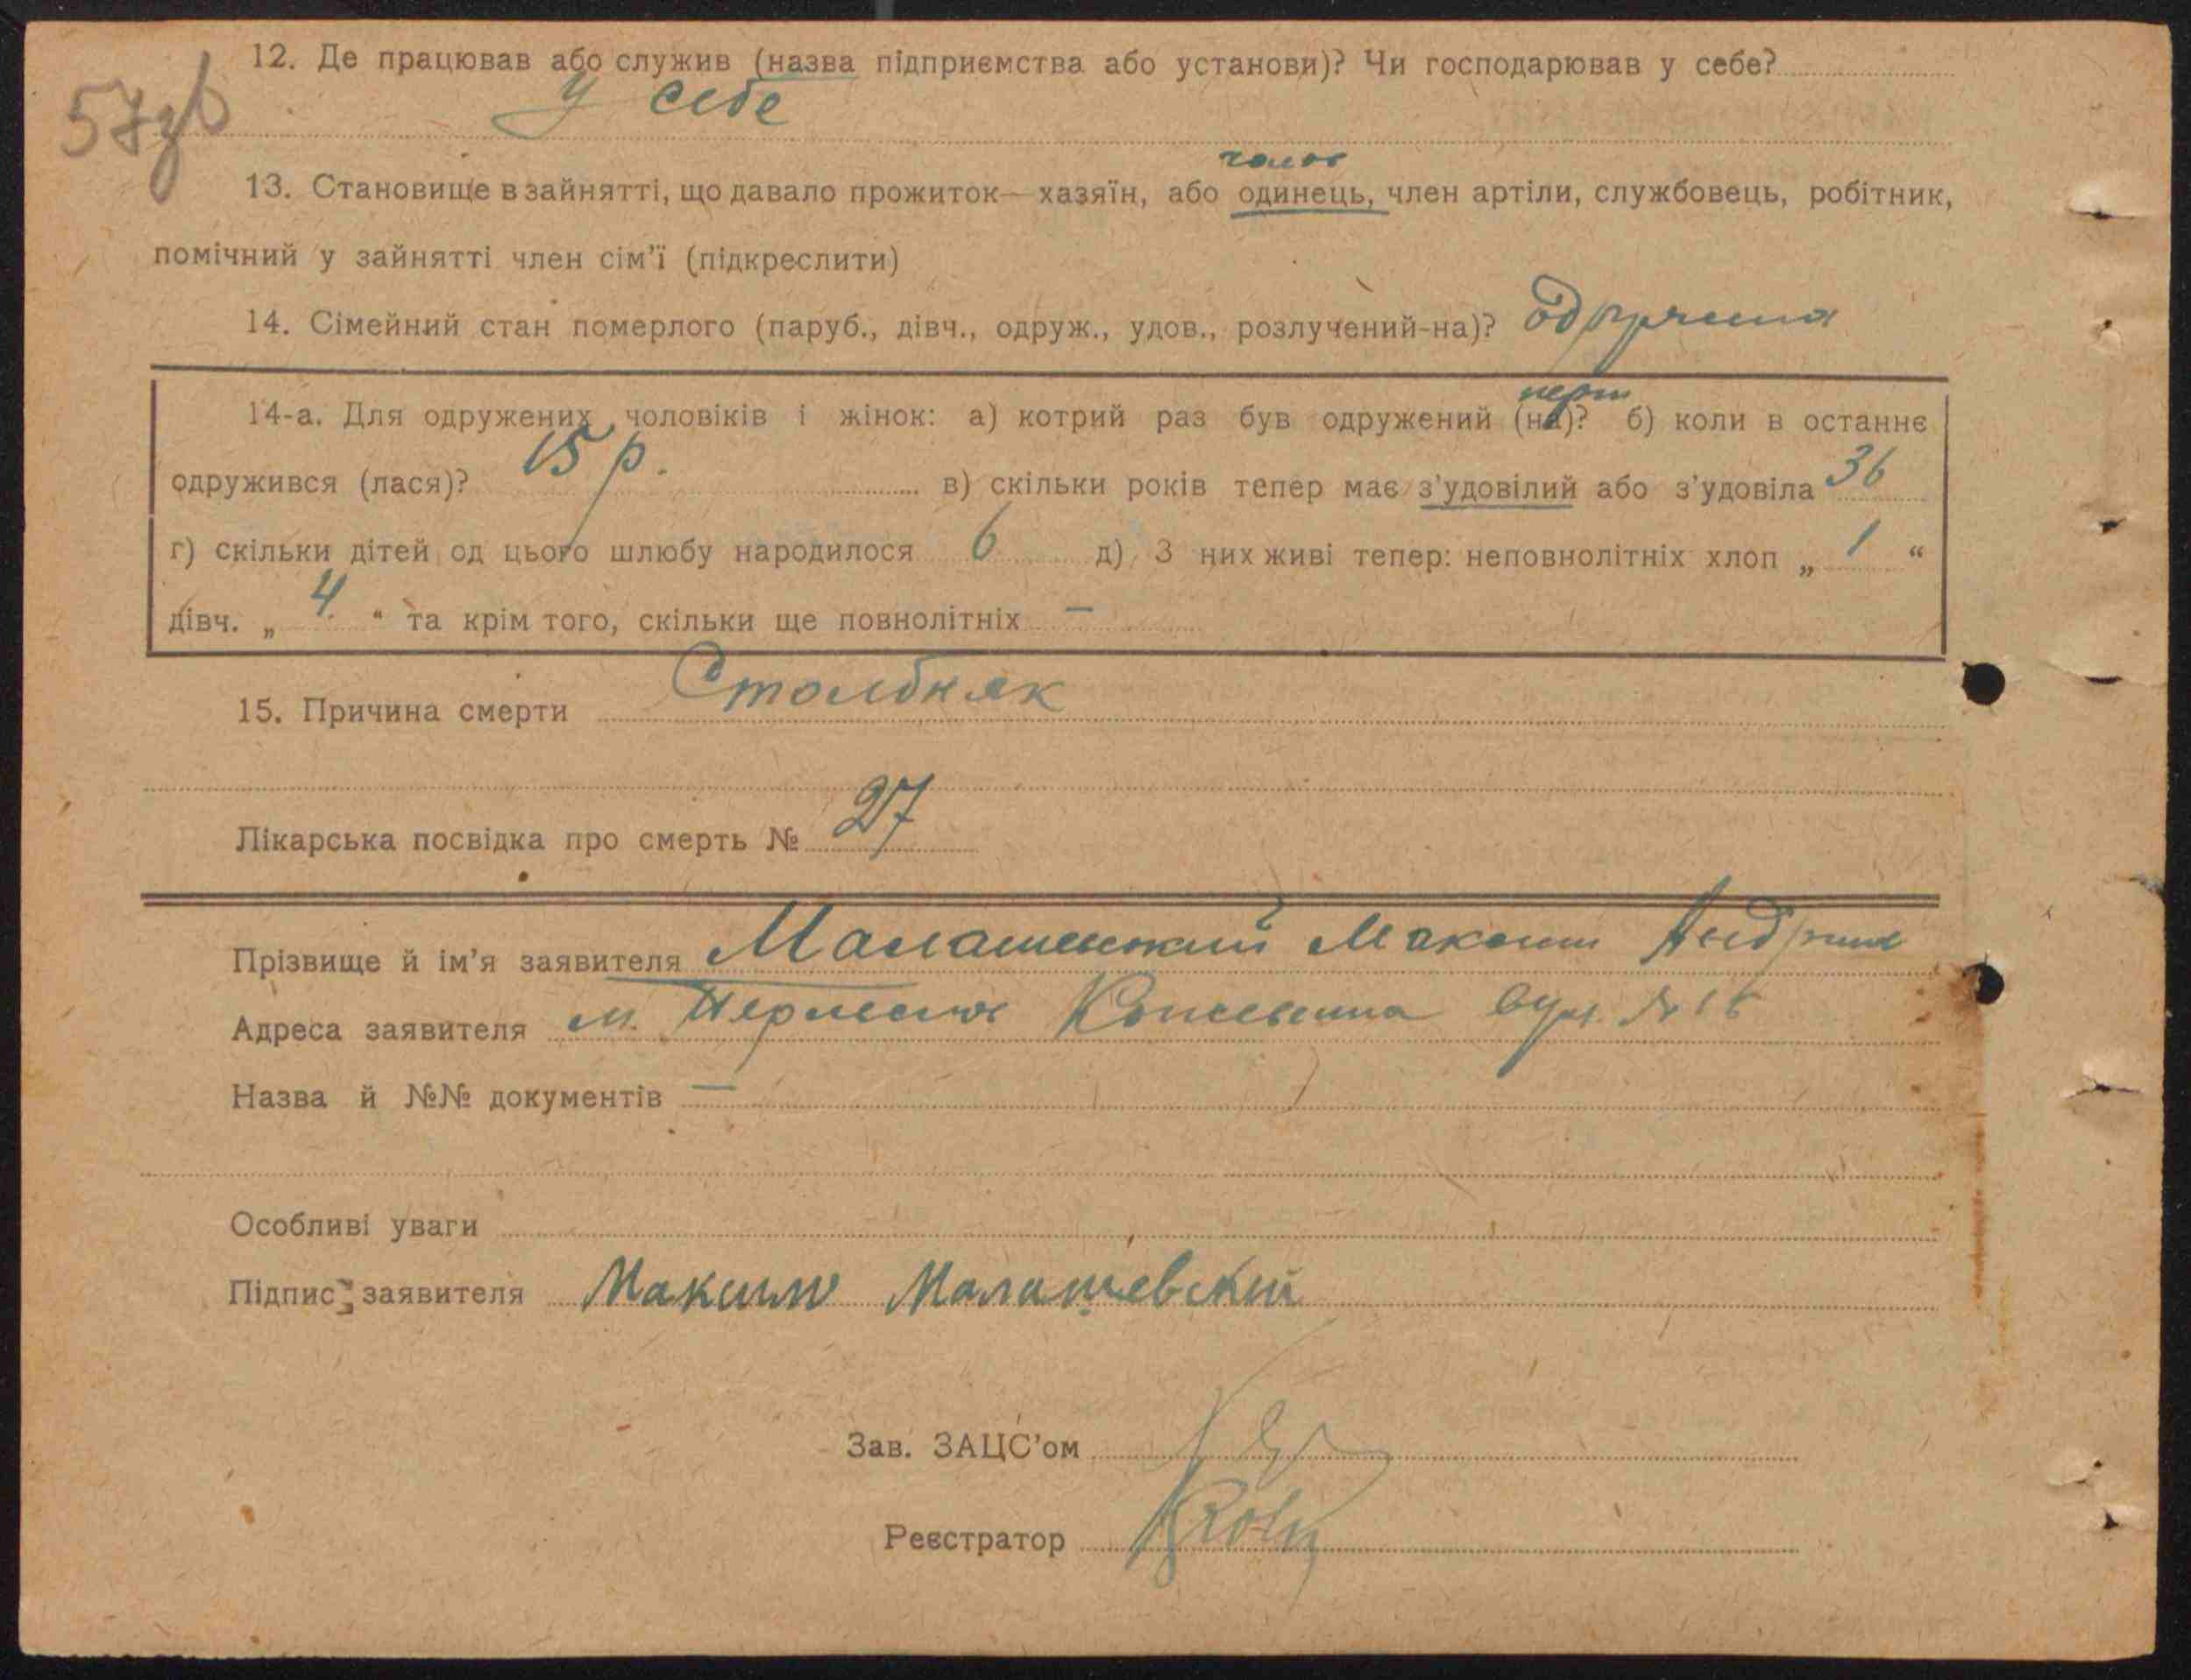 57зв
12. Де працював або служив (назва підприємства або установи)? Чи господарював у себе?
у себе
чолов
13. Становище в зайнятті, що давало прожиток—хазяїн, або одинець, член артіли, службовець, робітник,
помічний у зайнятті член сім'ї (підкреслити)
14. Сімейний стан померлого (паруб., дівч., одруж., удов., розлучений-на)? одружена
перш
14-а. Для одружених чоловіків і жінок: а) котрий раз був одружений (на)? б) коли в останнє
одружився (лася)? 15 р. в) скільки років тепер має з'удовілий або з'удовіла 36
г) скільки дітей од цього шлюбу народилося 6 д) З них живі тепер: неповнолітніх хлоп „ 1 “
дівч. „ 4 “ та крім того, скільки ще повнолітніх —
15. Причина смерти Столбняк
Лікарська посвідка про смерть № 27
Прізвище й ім'я заявителя Малашевский Максим Андрив
Адреса заявителя м. вул. № 16
Назва й №№ документів —
Особливі уваги
Підпис заявителя Максим Малашевскій
Зав. ЗАЦС'ом
Реєстратор